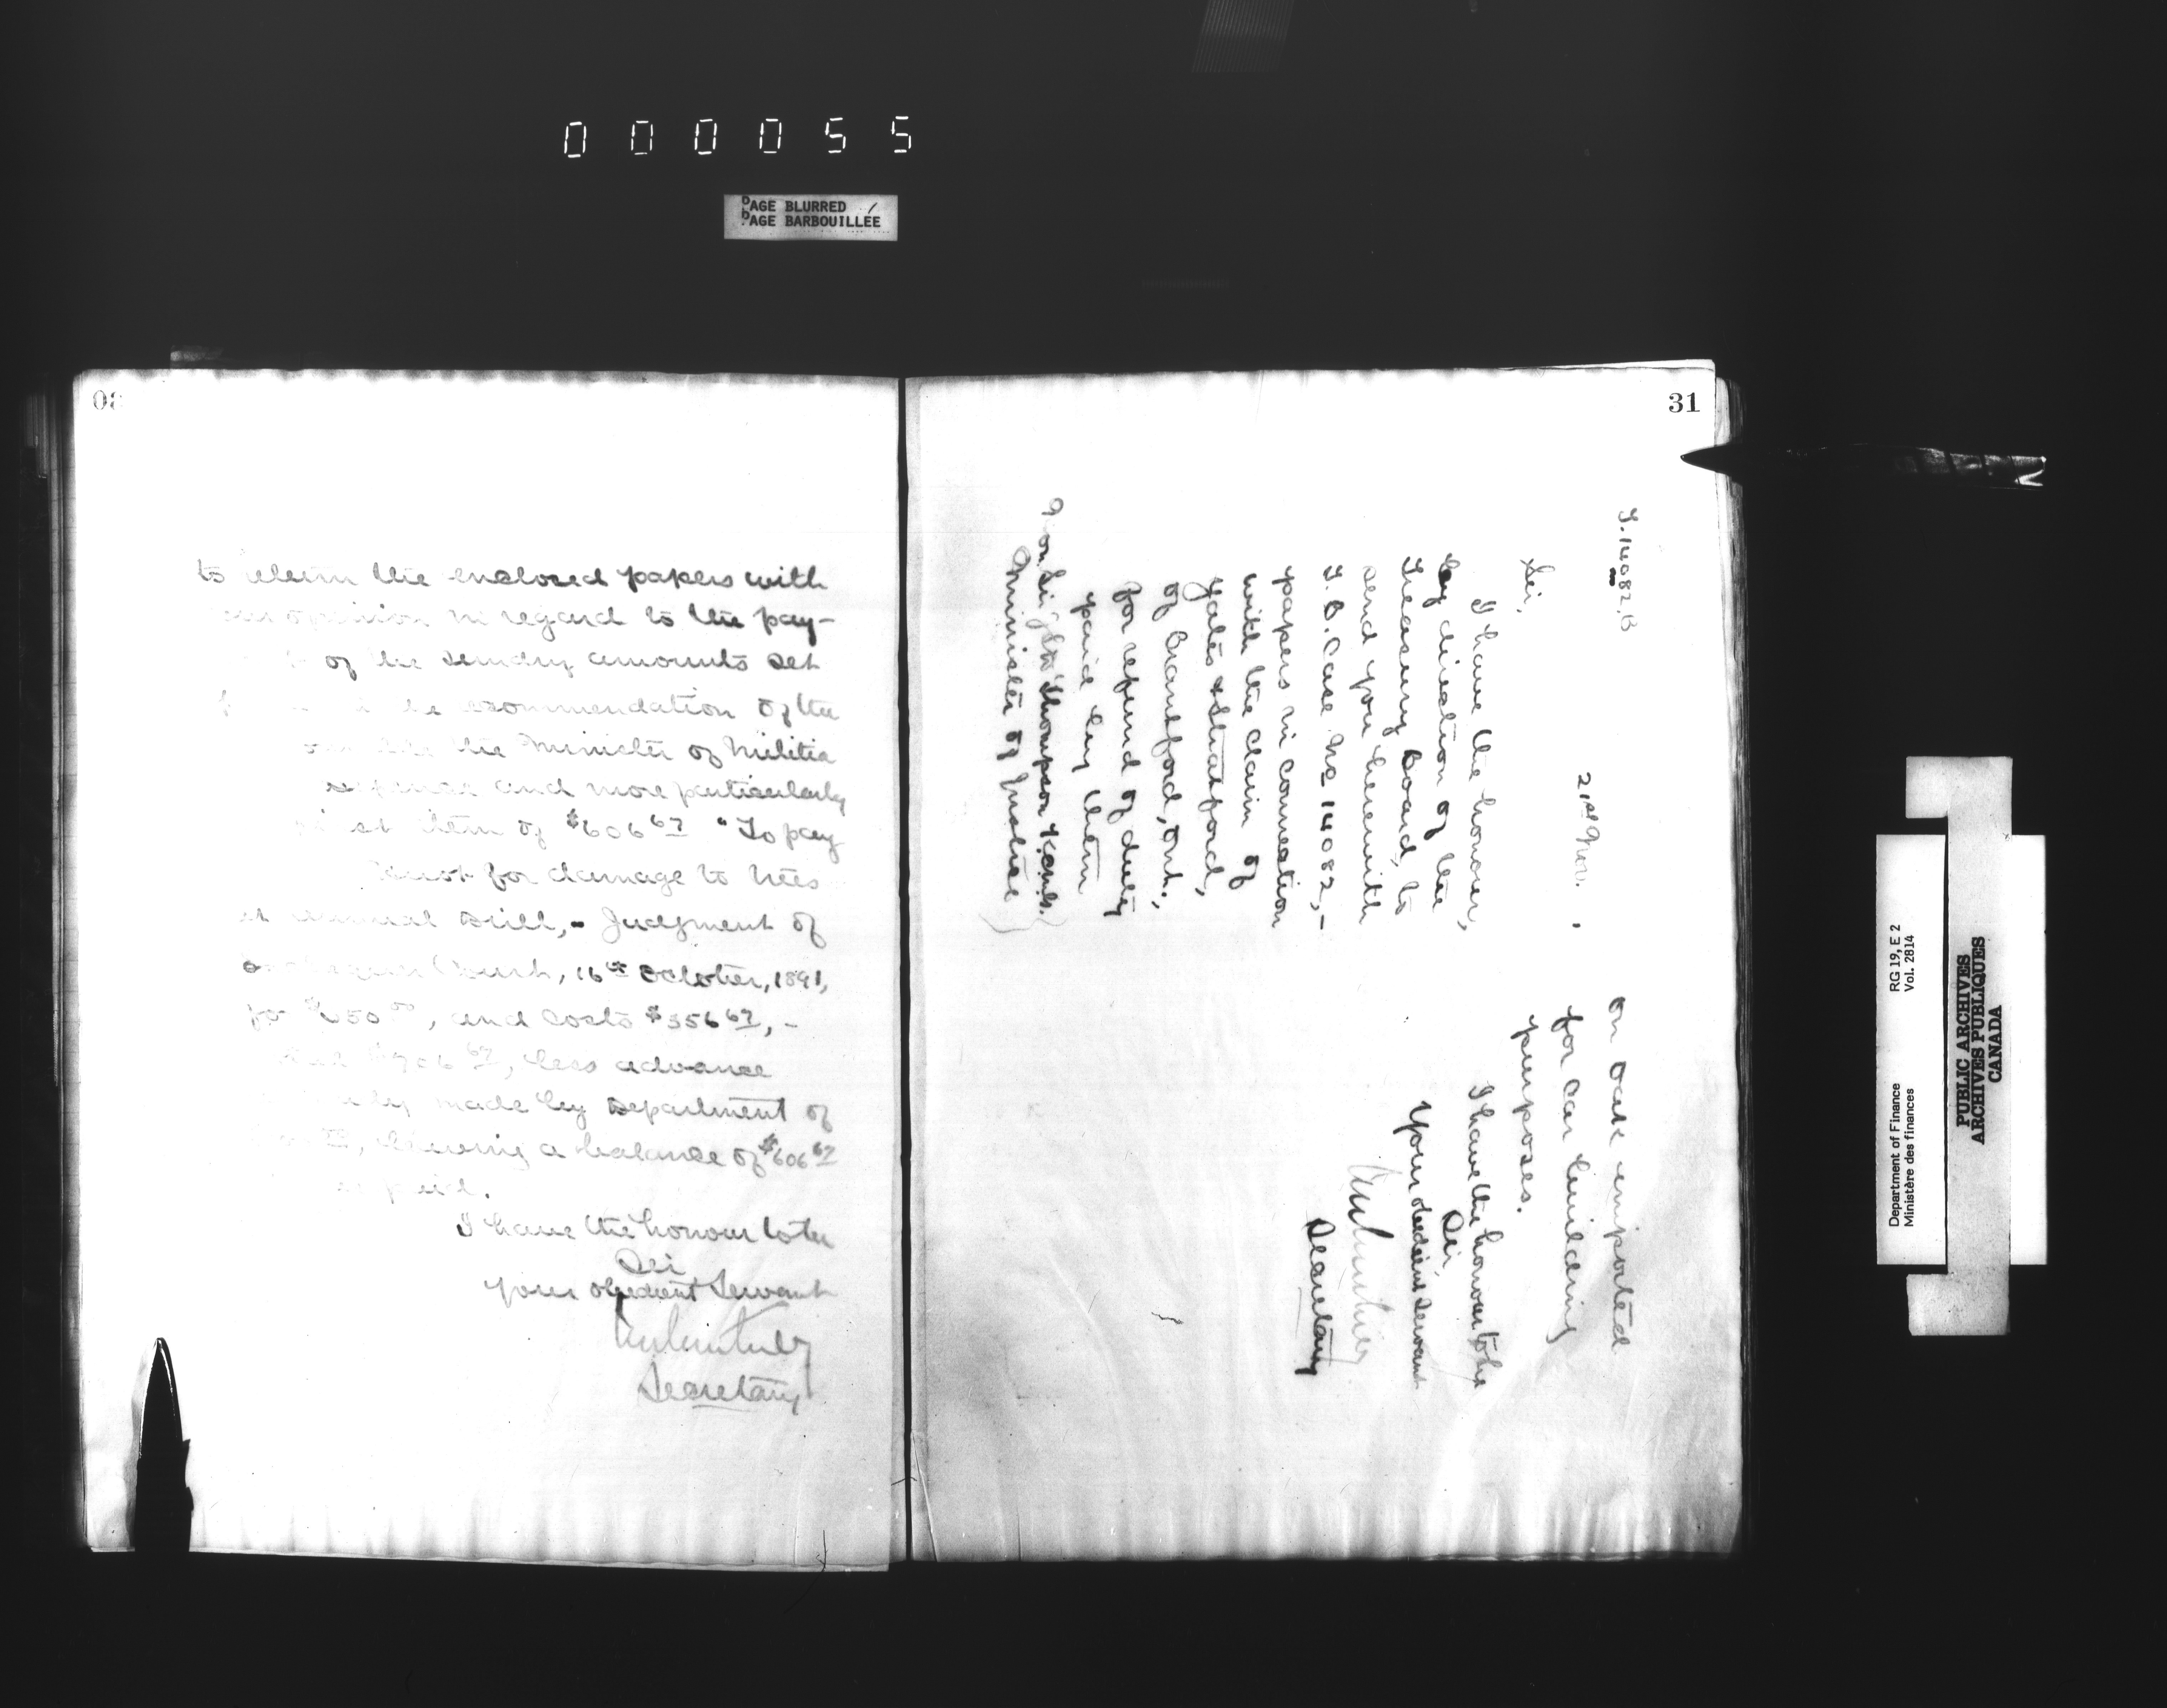 000055
PAGE BLURRED
PAGE BARBOUILLÉE
to return the enclosed papers with
opinion in regard to the pay-
of the sundry amounts set
recommendation of the
the Minister of Militia
and more particularly
item of $606 67 "To pay
for damage to trees
at annual Drill,- Judgment of
Court, 16th October, 1891,
50 00, and Costs $356 67, -
less advance
made by Department of
leaving a balance of $606 67
I have the honour to be
Sir
Your obedient Servant
Secretary
31
T. 14082, B
21st Nov.
Sir,
I have the honour,
by direction of the
Treasury Board, to
send you herewith
T. B. Case No 14082,-
papers in connection
with the claim of
Yates & Stratford,
of Brantford, Ont.,
for refund of duty
paid by them
Hon Sir Thompson
Minister of Justice
on oak imported
for car building
purposes.
I have the honour to be
Sir,
Your obedient Servant
Secretary
RG 19, E 2
Vol. 2814
Department of Finance
Ministère des finances
PUBLIC ARCHIVES
ARCHIVES PUBLIQUES
CANADA